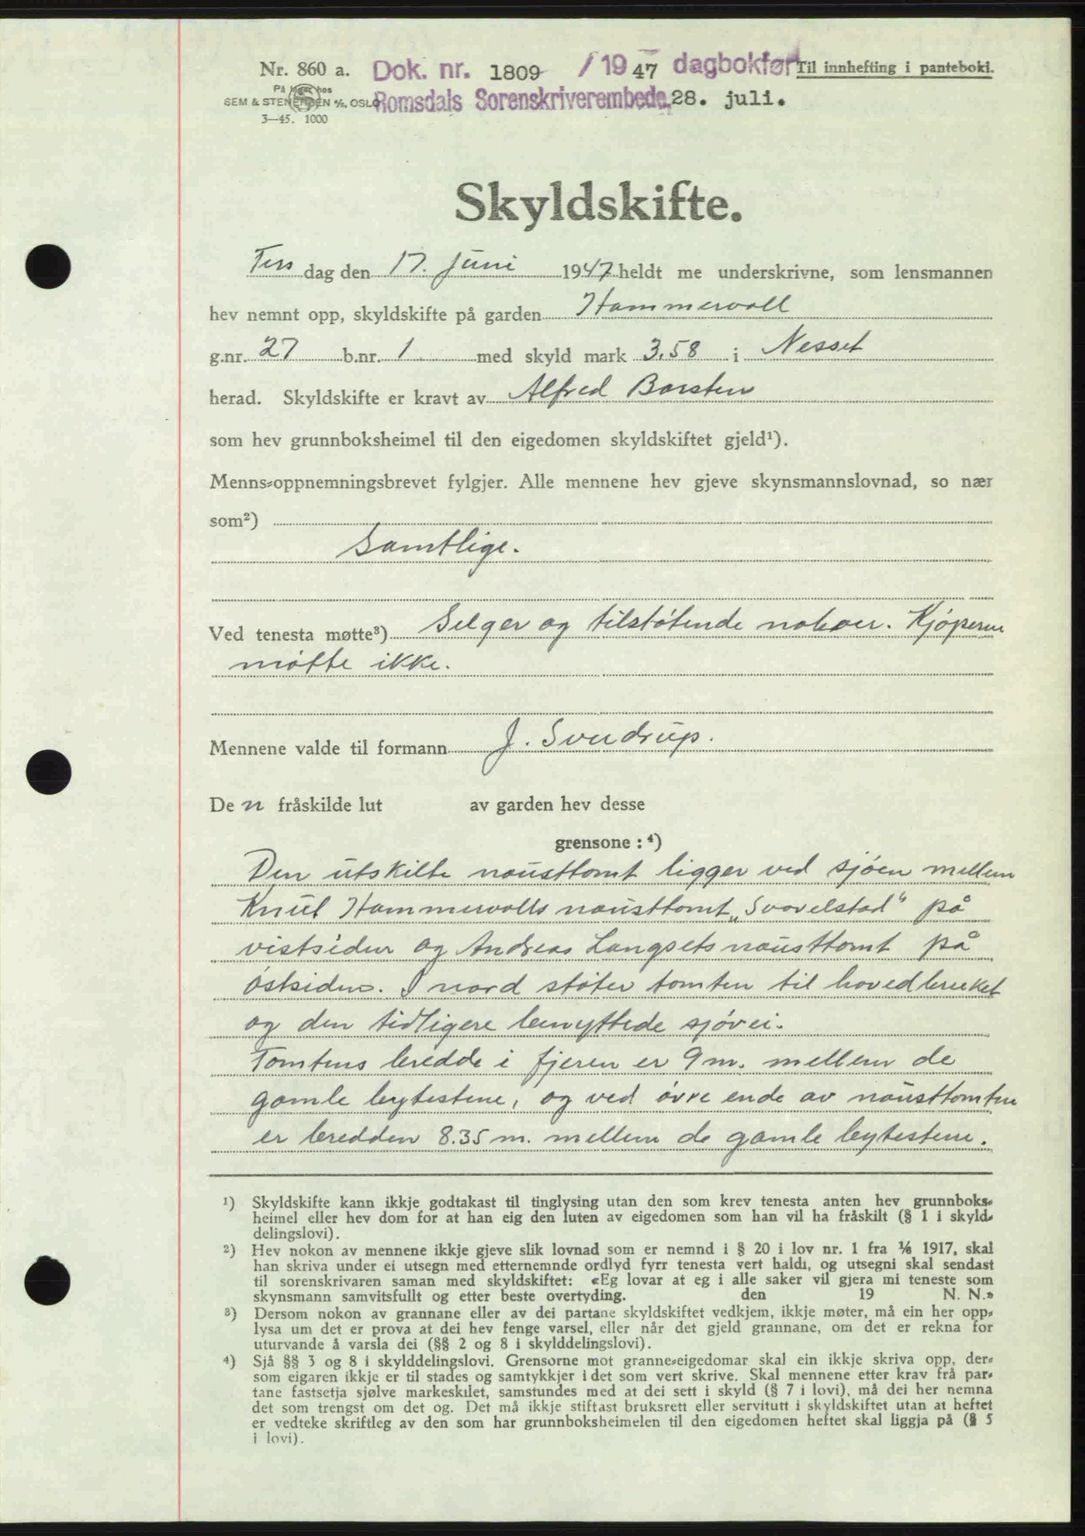 Nr. 860 a. Dok. nr. 1809 / 19 47 dagbokført Til innhefting i panteboki.
På lager hos
SEM & STENERSEN A/S, OSLO Romsdals Sorenskriverembede. 28. juli.
3—45. 1000
Skyldskifte.
Tirs dag den 17. juni 1947 heldt me underskrivne, som lensmannen
hev nemnt opp, skyldskifte på garden Hammervoll
g.nr. 27 b.nr. 1 med skyld mark 3.58 i Nesset
herad. Skyldskifte er kravt av Alfred Barsten
som hev grunnboksheimel til den eigedomen skyldskiftet gjeld¹).
Menns-oppnemningsbrevet fylgjer. Alle mennene hev gjeve skynsmannslovnad, so nær
som²)
Samtlige.
Ved tenesta møtte³) Selger og tilstøtende naboer. Kjøperen
møtte ikke.
Mennene valde til formann J. Sverdrup.
De n fråskilde lut av garden hev desse
grensone : ⁴)
Den utskilte nausttomt ligger ved sjøen mellem
Knut Hammervolls nausttomt „Svovelstad" på
vestsiden og Andreas Langsets nausttomt på
østsiden. I nord støter tomten til hovedbruket
og den tidligere benyttede sjøvei.
Tomtens bredde i fjæren er 9 m. mellem de
gamle bytestene, og ved øvre ende av nausttomten
er bredden 8.35 m. mellem de gamle bytestene.
¹) Skyldskifte kann ikkje godtakast til tinglysing utan den som krev tenesta anten hev grunnboks-
heimel eller hev dom for at han eig den luten av eigedomen som han vil ha fråskilt (§ 1 i skyld-
delingslovi).
²) Hev nokon av mennene ikkje gjeve slik lovnad som er nemnd i § 20 i lov nr. 1 fra ⅙ 1917, skal
han skriva under ei utsegn med etternemnde ordlyd fyrr tenesta vert haldi, og utsegni skal sendast
til sorenskrivaren saman med skyldskiftet: «Eg lovar at eg i alle saker vil gjera mi teneste som
skynsmann samvitsfullt og etter beste overtyding. den 19 N. N.»
³) Dersom nokon av grannane eller av dei partane skyldskiftet vedkjem, ikkje møter, må ein her opp-
lysa um det er prova at dei hev fenge varsel, eller når det gjeld grannane, om det er rekna for
uturvande å varsla dei (§§ 2 og 8 i skylddelingslovi).
⁴) Sjå §§ 3 og 8 i skylddelingslovi. Grensorne mot granne-eigedomar skal ein ikkje skriva opp, der-
som eigaren ikkje er til stades og samtykkjer i det som vert skrive. Skal mennene etter krav frå par-
tane fastsetja sjølve markeskilet, samstundes med at dei sett i skyld (§ 7 i lovi), må dei her nemna
det som trengst om det og. Det må ikkje stiftast bruksrett eller servitutt i skyldskiftet utan at heftet
er vedteke skriftleg av den som har grunnboksheimelen til den eigedomen heftet skal liggja på (§ 5
i lovi).